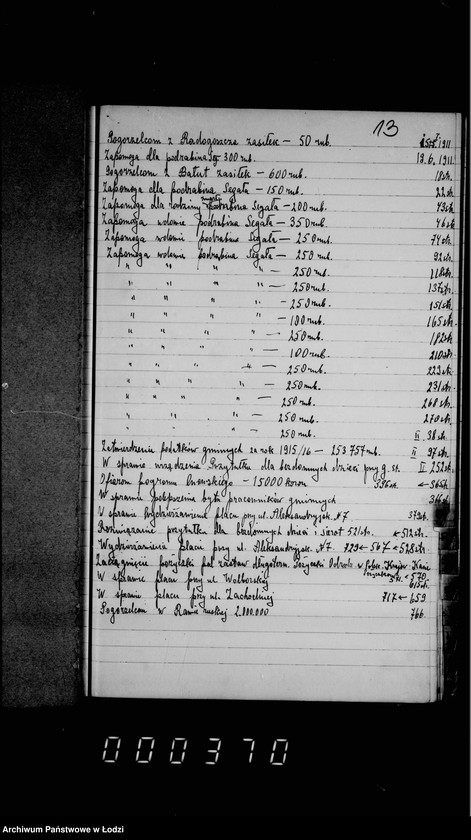 13
Pogorzelcom z Radogoszcza zasiłek — 50 rub. 1911
Zapomoga dla podrabina 300 rub. 13.6.1911.
Pogorzelcom z Bałut zasiłek — 600 rub. 18 st.
Zapomoga dla podrabina Segała — 150 rub. 22 st.
Zapomoga dla rodziny podrabina Segała — 200 rub. 43 st.
Zapomoga wdowie podrabina Segała — 350 rub. 46 st.
Zapomoga wdowie podrabina Segała — 250 rub. 74 st.
Zapomoga wdowie podrabina Segała — 250 rub. 92 st.
" " " " — 250 rub. 118 st.
" " " " — 250 rub. 137 st.
" " " " — 250 rub. 151 st.
" " " " — 100 rub. 165 st.
" " " " — 250 rub. 182 st.
" " " " — 100 rub. 210 st.
" " " " — 250 rub. 223 st.
" " " " — 250 rub. 231 st.
" " " " 250 rub. 268 st.
" " " — 250 rub. 270 st.
" " " — 250 rub. II 38 st.
Zatwierdzenie podatków gminnych za rok 1915/16 — 253757 rub. II 97 st.
W sprawie urządzenia Przytułku dla bezdomnych dzieci przy g. st. II 252 st.
Ofiarom pogromu lwowskiego — 15000 koron 336 st. ← 364 st.
W sprawie polepszenia bytu pracowników gminnych 366 st.
W sprawie wydzierżawienia placu przy ul. Aleksandryjsk. № 7 373 st.
Rozwiązanie przytułku dla bezdomnych dzieci i sierot 521 st. ← 512 st.
Wydzierżawienie placu przy ul. Aleksandryjsk. № 7. 729 ← 547 ← 528 st.
Zaciągnięcie pożyczki pod zastaw długoterm. Pożyczki Odrodz. w Polsc. Krajow. Kasie
Pożyczkowej ← 570
W sprawie placu przy ul. Wolborskiej 615 st.
W sprawie placu przy ul. Zachodniej 717 ← 659
Pogorzelcom w Rawie ruskiej 2.000.000 766.
000370
Archiwum Państwowe w Łodzi